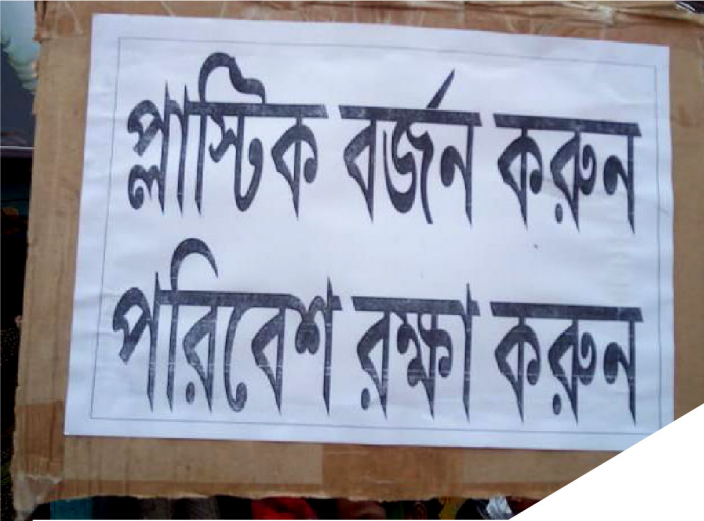 প্লাস্টিক বর্জন করুন
পরিবেশ রক্ষা করুন